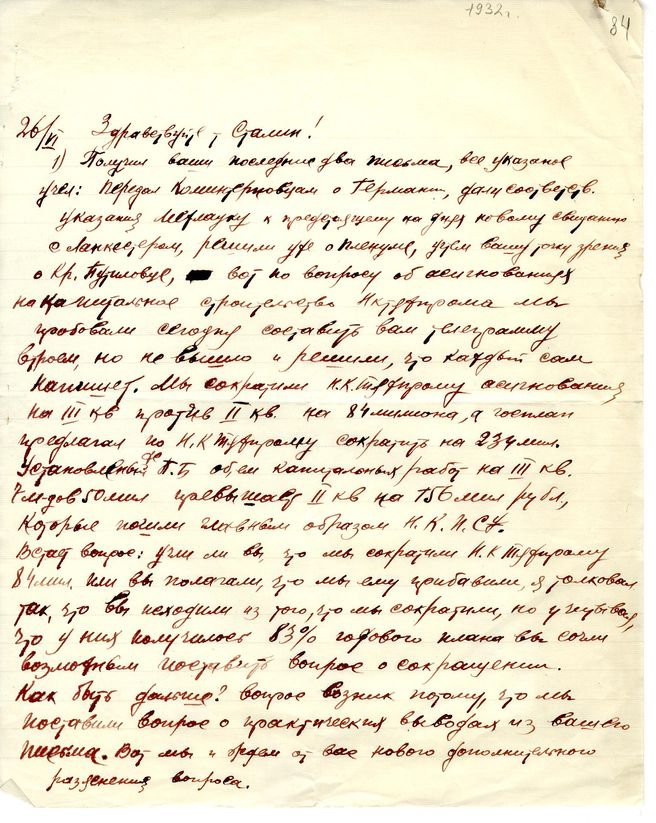 1932 г.
84
26/VI Здравствуйте т Сталин!
1) Получил ваши последние два письма, все указаное
учел: передал Коминтерновцам о Германии, дали соответств.
указания Межлауку к предстоящему на днях новому свещанию
с Ланкестером, решили уже о пленуме, учтем вашу точку зрения
о Кр. Путиловце, вот по вопросу об асигнованиях
на капитальное строительство Нктяжпрома мы
пробовали сегодня составить вам телеграмму
втроем, но не вышло и решили, что каждый сам
напишет. Мы сократили Н.К.Тяжпрому асигнования
на III кв против II кв. на 84 милиона, а госплан
предлагал по Н.КТяжпрому сократить на 234 мил.
Установленый же П.Б объем капитальных работ на III кв.
7 м-дов 50 мил превышает II кв на 150 мил рубл,
которые пошли главным образом Н.К.П.С.
Встает вопрос: учли ли вы, что мы сократили Н.КТяжпрому
84 мил. или вы полагали, что мы ему прибавили, я толковал
так, что вы исходили из того, что мы сократили, но учитывая,
что у них получилось 83% годового плана вы сочли
возможным поставить вопрос о сокращении.
Как быть дальше? вопрос возник потому, что мы
поставили вопрос о практических выводах из вашего
письма. Вот мы и ждем от вас нового дополнительного
разяснения вопроса.